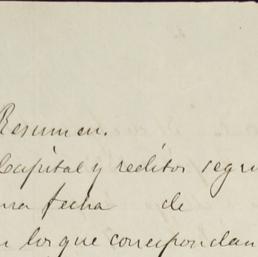 Resumen.
Capital y reditos segun
fecha de
los que correspondan